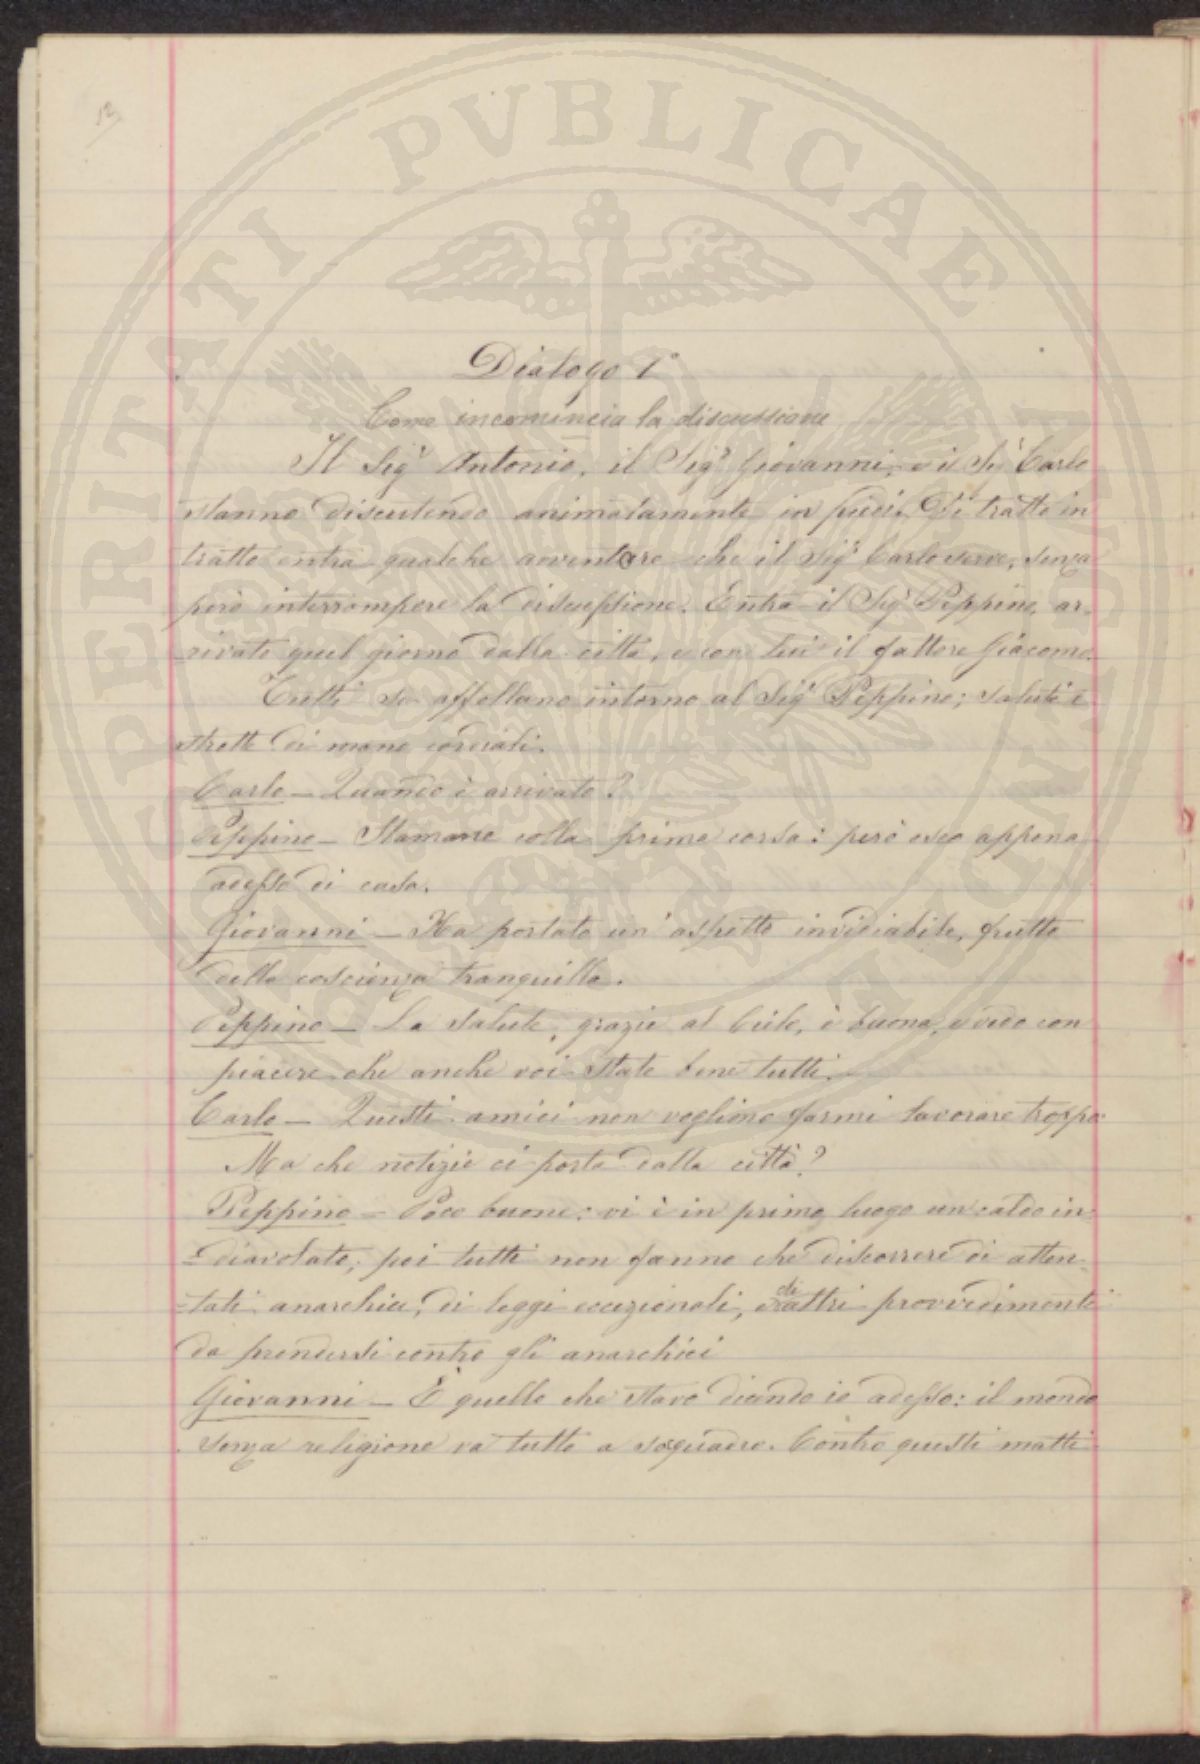 12
Dialogo 1°
Come incomincia la discussione
Il Sigr Antonio, il Sigr Giovanni, e il Sigr Carlo
stanno discutendo animatamente in piedi. Di tratto in
tratto entra qualche avventore che il Sigr Carlo serve, senza
però interrompere la discussione. Entra il Sigr Peppino, ar-
-rivato quel giorno dalla città, e con lui il fattore Giacomo.
Tutti si affollano intorno al Sigr Peppino; saluti e
strette di mano cordiali.
Carlo – Quando è arrivato?
Peppino – Stamane colla prima corsa: però esco appena
adesso di casa.
Giovanni – Ha portato un' aspetto invidiabile, frutto
della coscienza tranquilla.
Peppino – La salute, grazie al Cielo, è buona, e vedo con
piacere che anche voi state bene tutti.
Carlo – Questi amici non vogliono farmi lavorare troppo.
Ma che notizie ci porta dalla città?
Peppino – Poco buone: vi è in primo luogo un caldo in-
=diavolato; poi tutti non fanno che discorrere di atten-
-tati anarchici, di leggi eccezionali, di altri provvedimenti
da prendersi contro gli anarchici
Giovanni – È quello che stavo dicendo io adesso: il mondo
senza religione va tutto a soqquadro. Contro questi matti
SPERITATI PVBLICAE